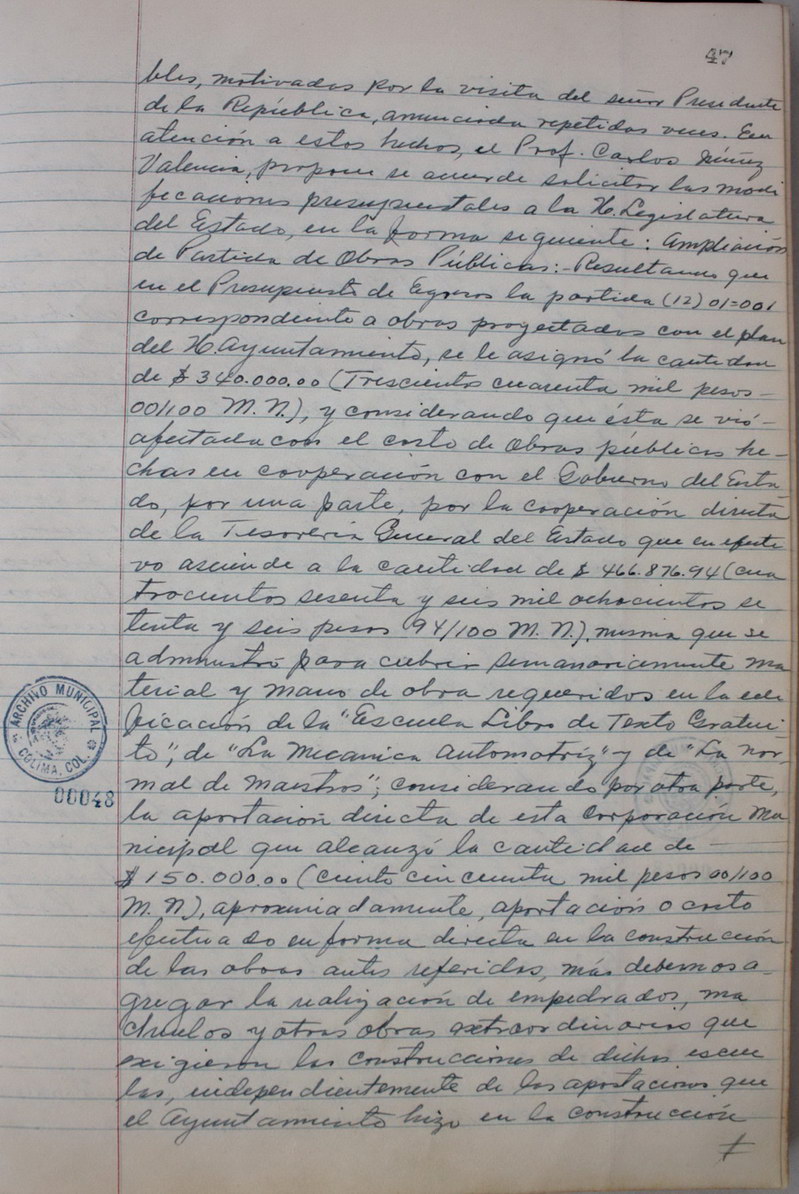 47
bles, motivadas por la visita del señor Presidente
de la República, anunciada repetidas veces. En
atención a estos hechos, el Prof. Carlos Núñez
Valencia, propone se acuerde solicitar las modi
ficaciones presupuestales a la H. Legislatura
del Estado, en la forma siguiente: Ampliación
de Partida de Obras Públicas:- Resultando que
en el Presupuesto de Egresos la partida (12) 01=001
correspondiente a obras proyectadas con el plan
del H. Ayuntamiento, se le asignó la cantidad
de $340.000.00 (Trescientos cuarenta mil pesos-
00/100 M.N.), y considerando que ésta se vió-
afectada con el costo de obras públicas he-
chas en cooperación con el Gobierno del Esta
do, por una parte, por la cooperación directa
de la Tesorería General del Estado que en efecti
vo asciende a la cantidad de $466.876.94 (cua
trocientos sesenta y seis mil ochocientos se
tenta y seis pesos 94/100 M.N.), misma que se
administró para cubrir semanariamente ma
terial y mano de obra requeridos en la edi
ficación de la "Escuela Libro de Texto Gratui
to", de "La Mecanica Automotriz" y de "La nor
mal de Maestros"; considerando por otra parte,
la aportación directa de esta Corporación Mu
nicipal que alcanzó la cantidad de -
$150.000.00 (ciento cincuenta mil pesos 00/100
M.N), aproximadamente, aportación o costo
efectuado en forma directa en la construcción
de las obras antes referidas, más debemos a-
gregar la realización de empedrados, ma
chuelos y otras obras extraordinarias que
exigieron las construcciones de dichas escue
las, independientemente de las aportaciones que
el Ayuntamiento hizo en la construcción
ARCHIVO MUNICIPAL
COLIMA, COL.
00048